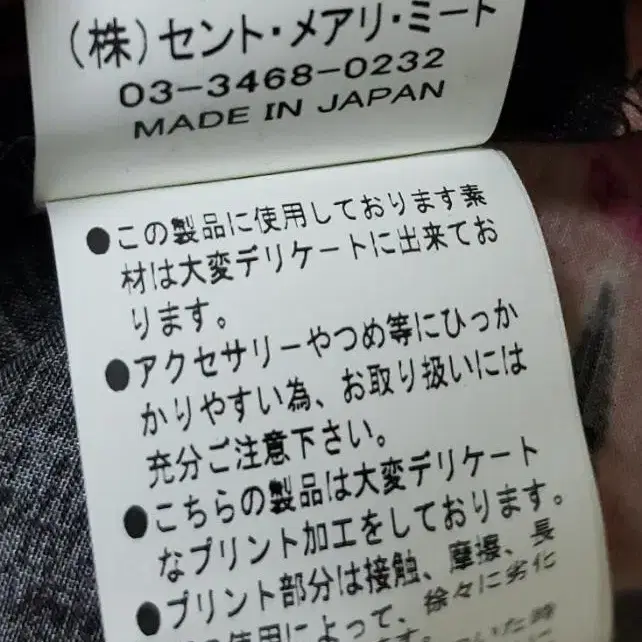 (株)セント・メアリ・ミート
03-3468-0232
MADE IN JAPAN
●この製品に使用しております素
材は大変デリケートに出来てお
ります。
●アクセサリーやつめ等にひっか
かりやすい為、お取り扱いには
充分ご注意下さい。
●こちらの製品は大変デリケート
なプリント加工をしております。
●プリント部分は接触、摩擦、長
使用によって、徐々に劣化
いた時